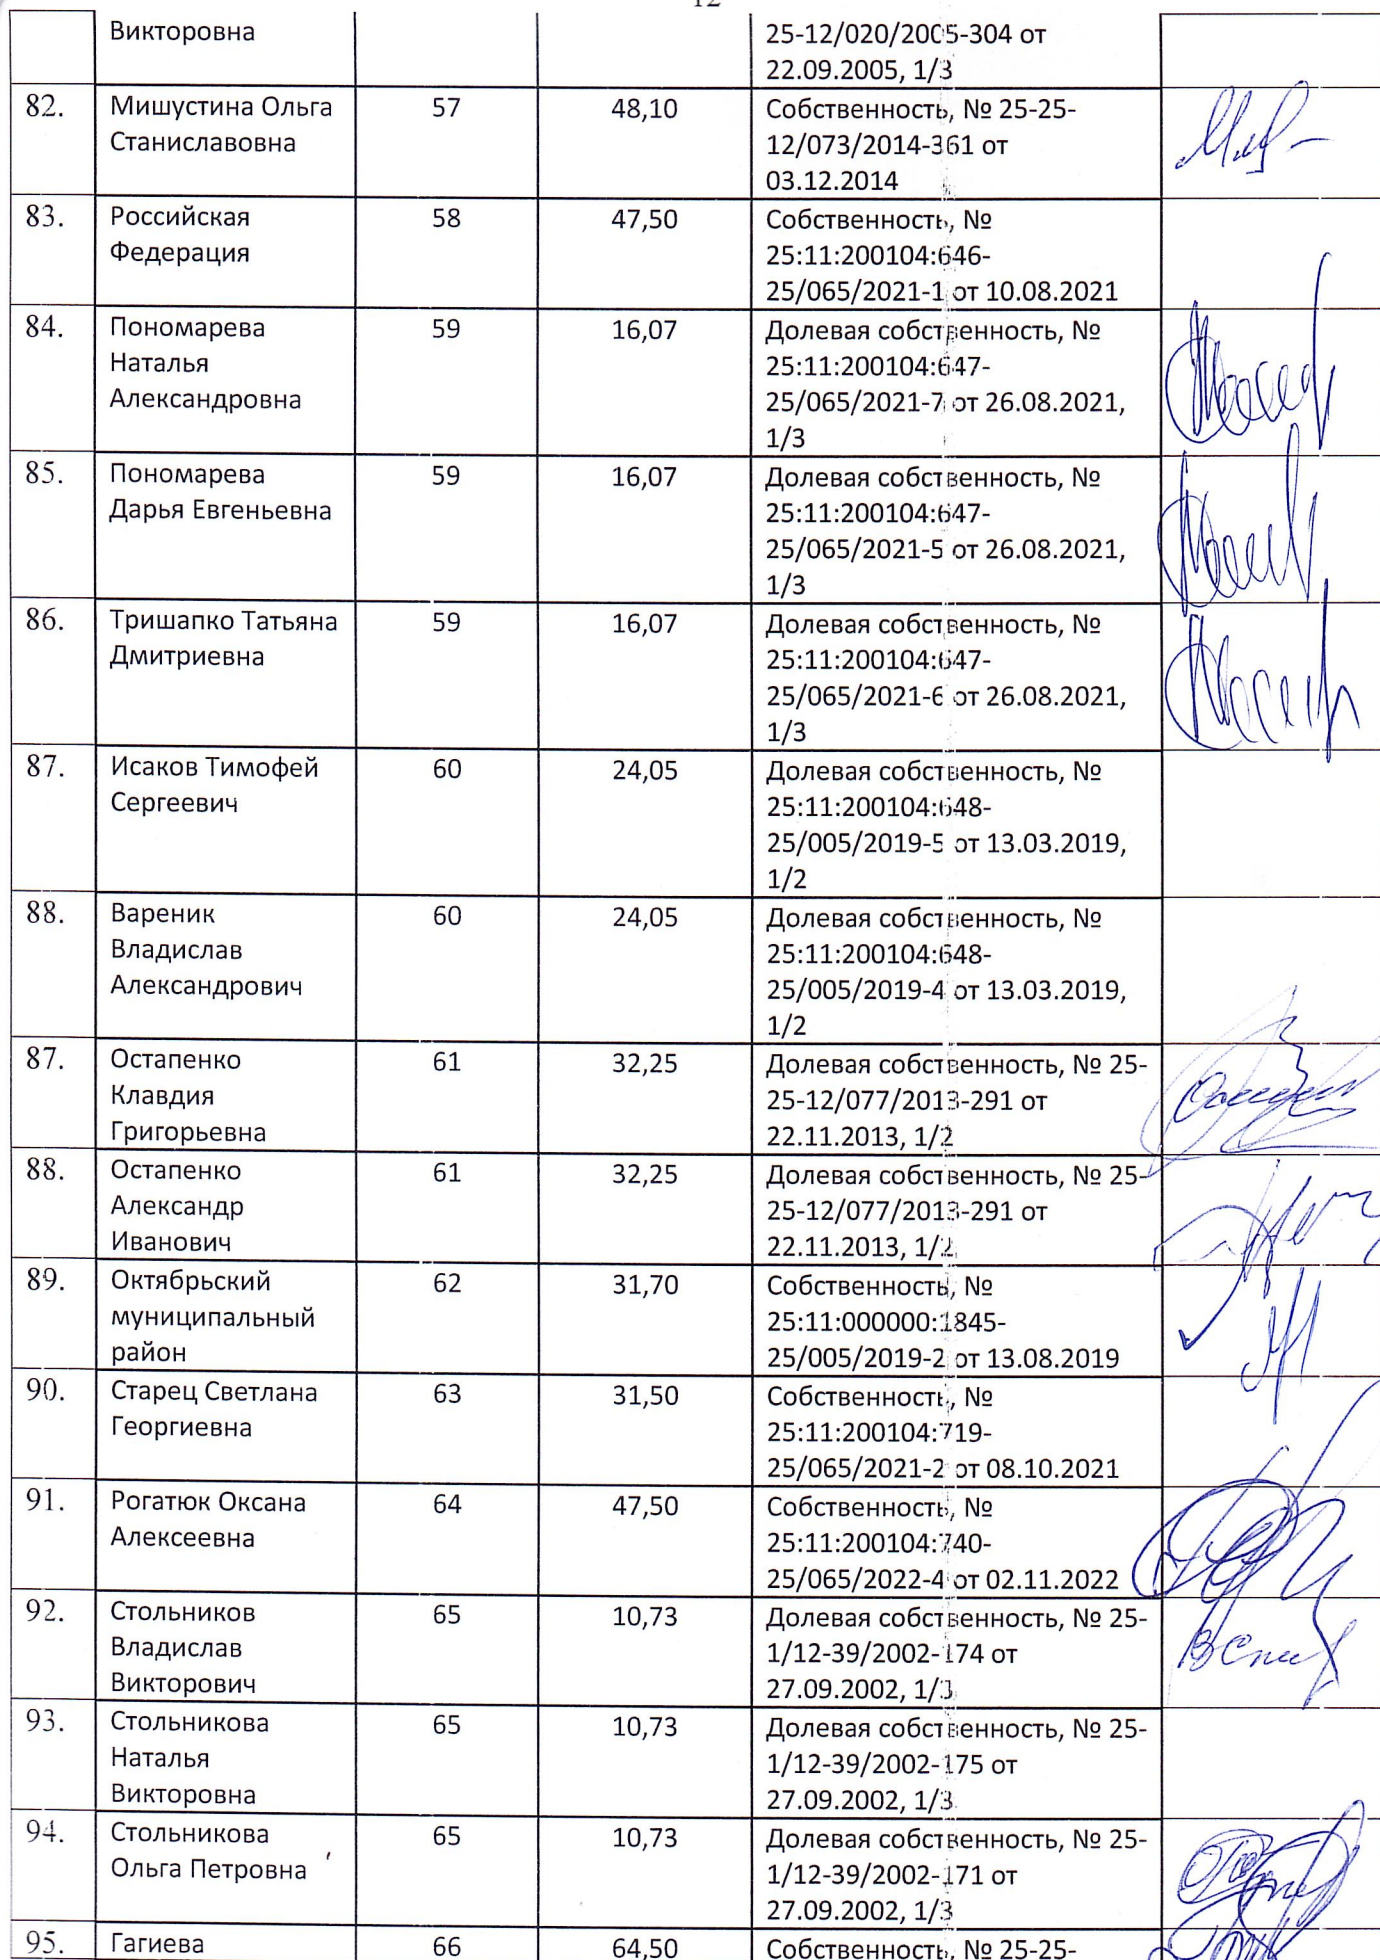 12
Викторовна
25-12/020/2005-304 от
22.09.2005, 1/3
82.
Мишустина Ольга
Станиславовна
57
48,10
Собственность, № 25-25-
12/073/2014-361 от
03.12.2014
83.
Российская
Федерация
58
47,50
Собственность, №
25:11:200104:646-
25/065/2021-1 от 10.08.2021
84.
Пономарева
Наталья
Александровна
59
16,07
Долевая собственность, №
25:11:200104:647-
25/065/2021-7 от 26.08.2021,
1/3
85.
Пономарева
Дарья Евгеньевна
59
16,07
Долевая собственность, №
25:11:200104:647-
25/065/2021-5 от 26.08.2021,
1/3
86.
Тришапко Татьяна
Дмитриевна
59
16,07
Долевая собственность, №
25:11:200104:647-
25/065/2021-6 от 26.08.2021,
1/3
87.
Исаков Тимофей
Сергеевич
60
24,05
Долевая собственность, №
25:11:200104:648-
25/005/2019-5 от 13.03.2019,
1/2
88.
Вареник
Владислав
Александрович
60
24,05
Долевая собственность, №
25:11:200104:648-
25/005/2019-4 от 13.03.2019,
1/2
87.
Остапенко
Клавдия
Григорьевна
61
32,25
Долевая собственность, № 25-
25-12/077/2013-291 от
22.11.2013, 1/2
88.
Остапенко
Александр
Иванович
61
32,25
Долевая собственность, № 25-
25-12/077/2013-291 от
22.11.2013, 1/2
89.
Октябрьский
муниципальный
район
62
31,70
Собственность, №
25:11:000000:1845-
25/005/2019-2 от 13.08.2019
90.
Старец Светлана
Георгиевна
63
31,50
Собственность, №
25:11:200104:719-
25/065/2021-2 от 08.10.2021
91.
Рогатюк Оксана
Алексеевна
64
47,50
Собственность, №
25:11:200104:740-
25/065/2022-4 от 02.11.2022
92.
Стольников
Владислав
Викторович
65
10,73
Долевая собственность, № 25-
1/12-39/2002-174 от
27.09.2002, 1/3
93.
Стольникова
Наталья
Викторовна
65
10,73
Долевая собственность, № 25-
1/12-39/2002-175 от
27.09.2002, 1/3
94.
Стольникова
Ольга Петровна
65
10,73
Долевая собственность, № 25-
1/12-39/2002-171 от
27.09.2002, 1/3
95.
Гагиева
66
64,50
Собственность, № 25-25-